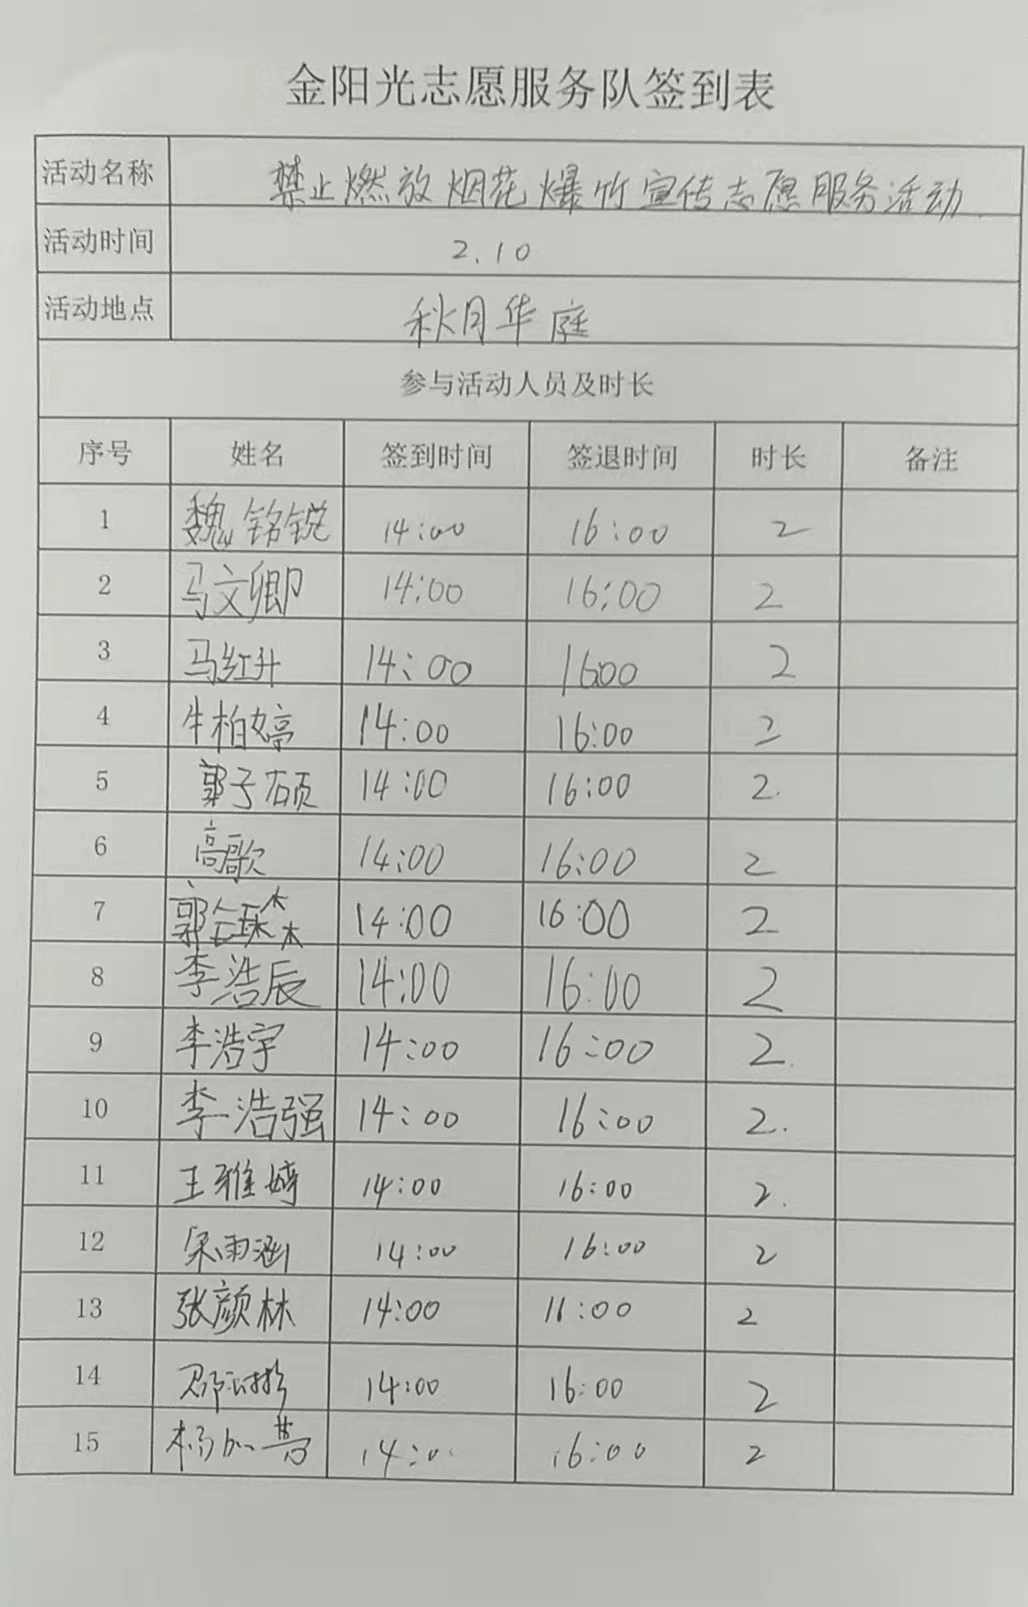 金阳光志愿服务队签到表
活动名称 禁止燃放烟花爆竹宣传志愿服务活动
活动时间 2.10
活动地点 秋月华庭
参与活动人员及时长
序号 姓名 签到时间 签退时间 时长 备注
1 魏铭锐 14:00 16:00 2
2 马文卿 14:00 16:00 2
3 马红升 14:00 1600 2
4 牛柏婷 14:00 16:00 2
5 郭子硕 14:00 16:00 2.
6 高歌 14:00 16:00 2
7 郭 14:00 16:00 2
8 李浩辰 14:00 16:00 2
9 李浩宇 14:00 16:00 2.
10 李浩强 14:00 16:00 2.
11 王雅婷 14:00 16:00 2.
12 梁雨涵 14:00 16:00 2
13 张颜林 14:00 16:00 2
14 14:00 16:00 2
15 杨 14:0 16:00 2